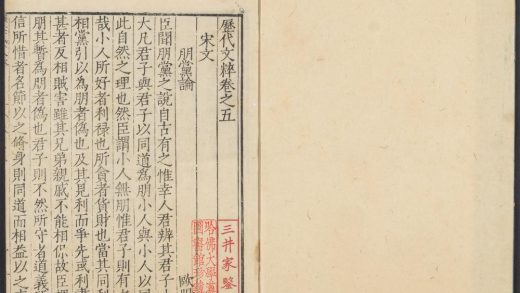 歷代文粹卷之五
宋文
朋黨論 歐
臣聞朋黨之說自古有之惟幸人君辨其君子
大凡君子與君子以同道為朋小人與小人以
此自然之理也然臣謂小人無朋惟君子則有
哉小人所好者利祿也所貪者貨財也當其同
相黨引以為朋者偽也及其見利而爭先或利
甚者反相賊害雖其兄弟親戚不能相保故臣
朋其暫為朋者偽也君子則不然所守者道義
信所惜者名節以之脩身則同道而相益以之
三井家鑒
哈佛大學
圖書館珍藏